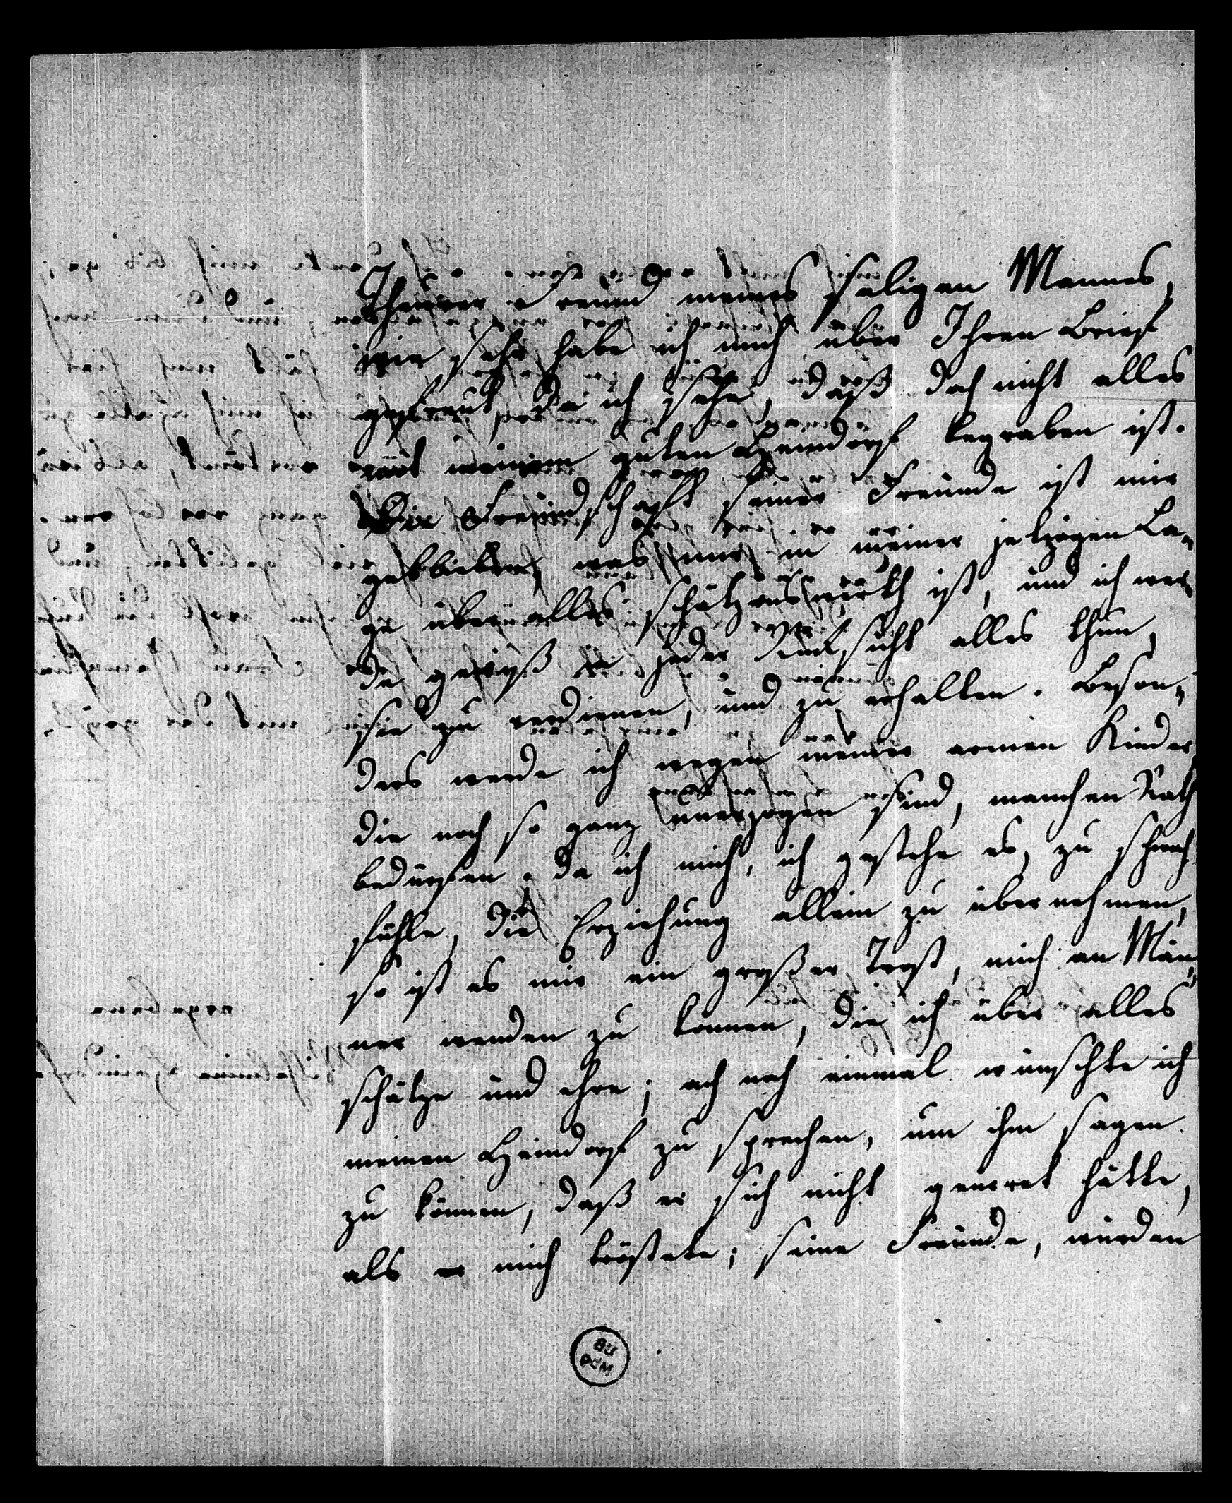 Theurer Freund meines seligen Mannes,
wie sehr habe ich mich über Ihren Brief
gefreut, da ich sehe, daß doch nicht alles
mit meinem guten Heindorf begraben ist.
Die Freundschaft seiner Freunde ist mir
geblieben, was mir in meiner jetzigen La-
ge über alles schätzenswerth ist, und ich wer-
de gewiß in jeder Hinsicht alles thun,
sie zu verdienen, und zu erhalten. Beson-
ders werde ich wegen meiner armen Kinder,
die noch so ganz unerzogen sind, manchen Rath
bedürfen. Da ich mich, ich gestehe es, zu schwach
fühle, die Erziehung allein zu übernehmen,
so ist es mir ein großer Trost, mich an Män-
ner wenden zu können, die ich über alles
schätze und ehre; ach noch einmal wünschte ich
meinen Heindorf zu sprechen, um ihm sagen
zu können, daß er sich nicht geirret hätte,
als er mich tröstete; seine Freunde, würden